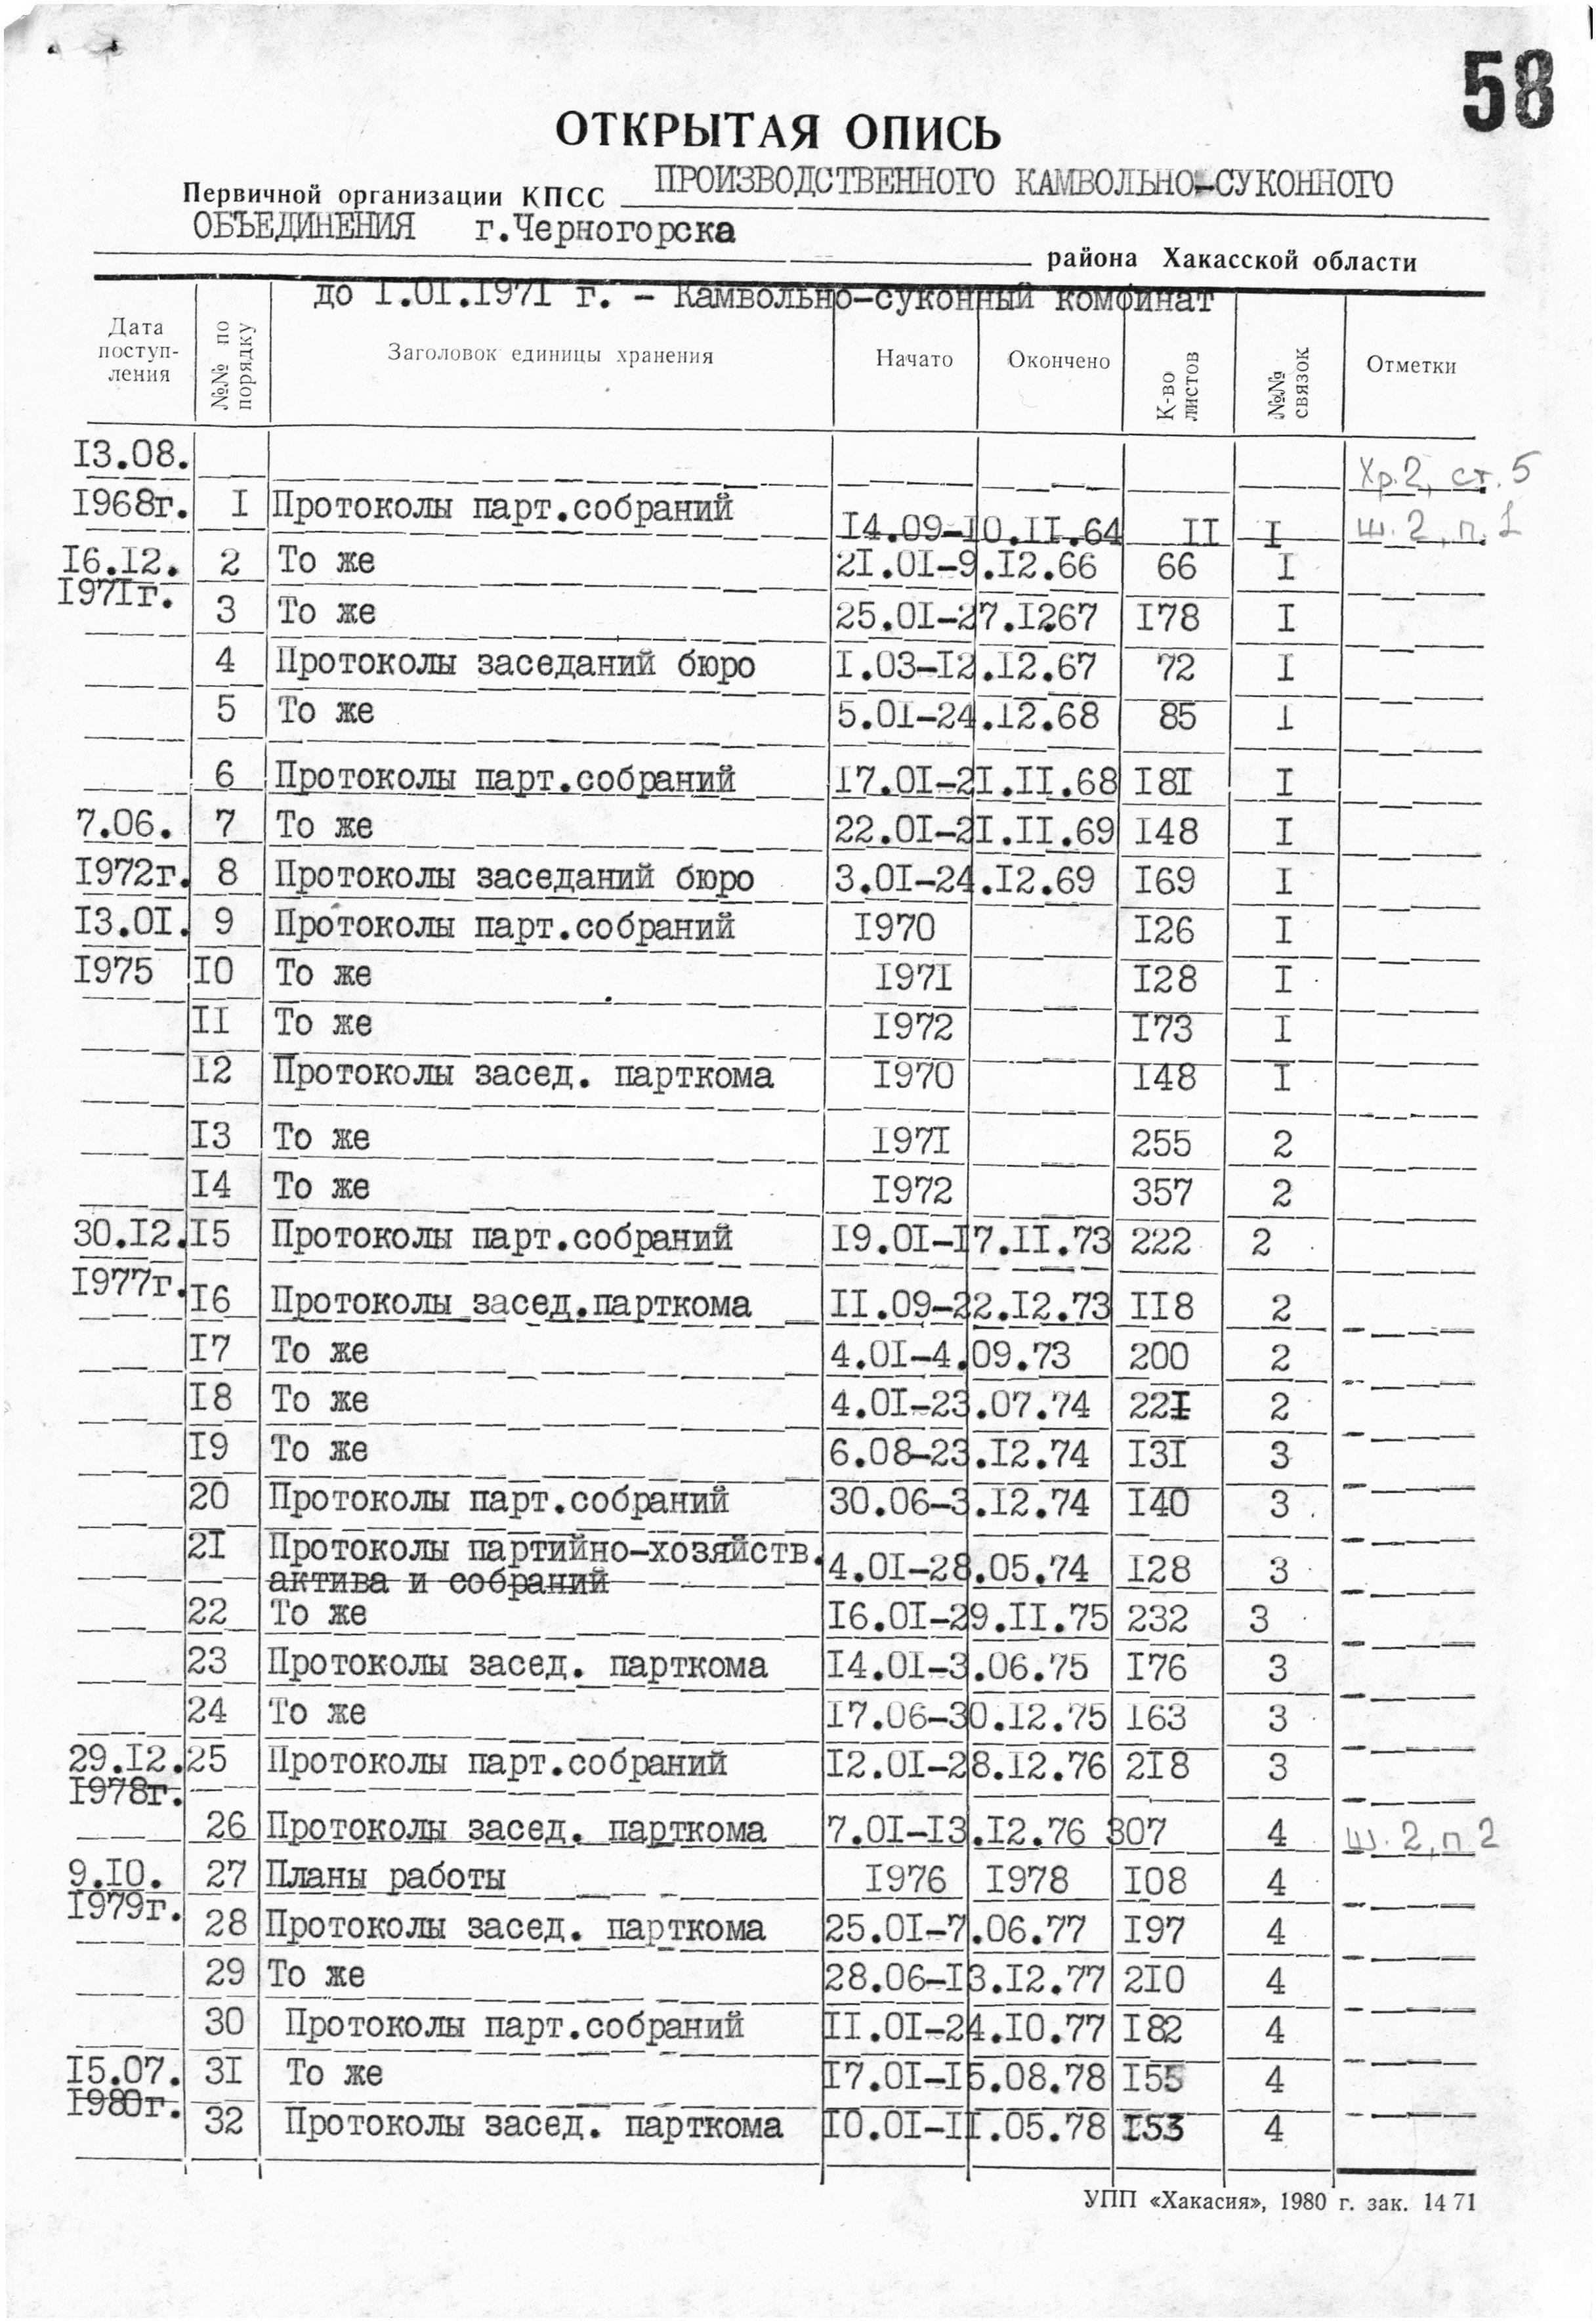 58
ОТКРЫТАЯ ОПИСЬ
Первичной организации КПСС ПРОИЗВОДСТВЕННОГО КАМВОЛЬНО-СУКОННОГО
ОБЪЕДИНЕНИЯ г.Черногорска
района Хакасской области
до I.OI.I97I г. - Камвольно-суконный комбинат
Дата поступ-ления №№ по порядку Заголовок единицы хранения Начато Окончено К-во листов №№ связок Отметки
I3.08. Хр.2, ст.5
I968г. I Протоколы парт.собраний I4.09-I0.II.64 II I ш.2, п.1
I6.I2. 2 То же 2I.OI-9.I2.66 66 I
I97Iг. 3 То же 25.OI-27.I267 I78 I
4 Протоколы заседаний бюро I.03-I2.I2.67 72 I
5 То же 5.OI-24.I2.68 85 I
6 Протоколы парт.собраний I7.OI-2I.II.68 I8I I
7.06. 7 То же 22.OI-2I.II.69 I48 I
I972г. 8 Протоколы заседаний бюро 3.OI-24.I2.69 I69 I
I3.OI. 9 Протоколы парт.собраний I970 I26 I
I975 I0 То же I97I I28 I
II То же I972 I73 I
I2 Протоколы засед. парткома I970 I48 I
I3 То же I97I 255 2
I4 То же I972 357 2
30.I2. I5 Протоколы парт.собраний I9.OI-I7.II.73 222 2
I977г. I6 Протоколы засед.парткома II.09-22.I2.73 II8 2
I7 То же 4.OI-4.09.73 200 2
I8 То же 4.OI-23.07.74 22I 2
I9 То же 6.08-23.I2.74 I3I 3
20 Протоколы парт.собраний 30.06-3.I2.74 I40 3
2I Протоколы партийно-хозяйств. 4.OI-28.05.74 I28 3
актива и собраний
22 То же I6.OI-29.II.75 232 3
23 Протоколы засед. парткома I4.OI-3.06.75 I76 3
24 То же I7.06-30.I2.75 I63 3
29.I2. 25 Протоколы парт.собраний I2.OI-28.I2.76 2I8 3
I978г.
26 Протоколы засед. парткома 7.OI-I3.I2.76 307 4 ш.2, п2
9.I0. 27 Планы работы I976 I978 I08 4
I979г. 28 Протоколы засед. парткома 25.OI-7.06.77 I97 4
29 То же 28.06-I3.I2.77 2I0 4
30 Протоколы парт.собраний II.OI-24.I0.77 I82 4
I5.07. 3I То же I7.OI-I5.08.78 I55 4
I980г. 32 Протоколы засед. парткома I0.OI-II.05.78 I53 4
УПП «Хакасия», 1980 г. зак. 1471